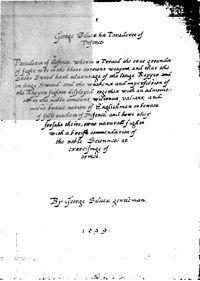 George Silver his Paradoxes of
Defence
Paradoxes of defence, wherein is proved the true grounds
of fight to be in the short auncient weapons, and that the
Short Sword hath advantage of the longe
or longe Sword. and the weaknes and imperfection of
the Rapyer fight displayed. together with an admonition
to the noble, auncient, victorious, valiant, and
most brave nation of Englishmen to beware
of false teachers of Defence, and howe they
forsake there owne naturall fights
with a briefe commendation of
the noble Science or
exercising of
armes.
By George Silver gentleman.
1599.